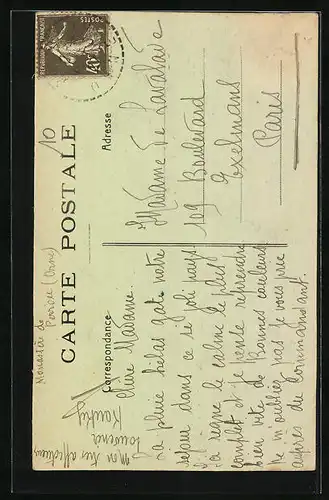 POSTES
40c
Monastère de
(Orne)
10
CARTE POSTALE
Correspondance
Adresse
Chère Madame.
La pluie hélas gate votre
séjour dans ce si joli pays
La règne le calme le plus
complet et je pense reprendre
bien vite de Bonnes couleurs
Ne m'oubliez pas je vous prie
auprès du Commandant.
Mon très affectueux
souvenir
Madame de Lavalade
109 Boulevard
Exelmans
Paris